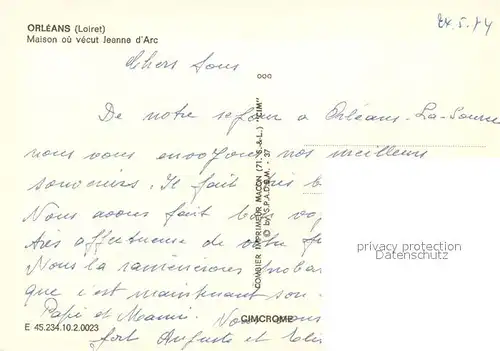 ORLÉANS (Loiret)
Maison où vécut Jeanne d'Arc
24.5.74
Chers tous
De notre séjour à Orléans-La-Source
nous vous envoyons nos meilleurs
souvenirs. Il fait très b
Nous avons fait bon vo
très affectueuse de votre
Nous la ramènerons
que c'est maintenant son
Papi et Mami. Nous
fort Auguste et
privacy protection
Datenschutz
COMBIER IMPRIMEUR MACON (71, S.-&-L.) "CIM"
© by S.P.A.D.E.M. - 37
CIMCROME
E 45.234.10.2.0023